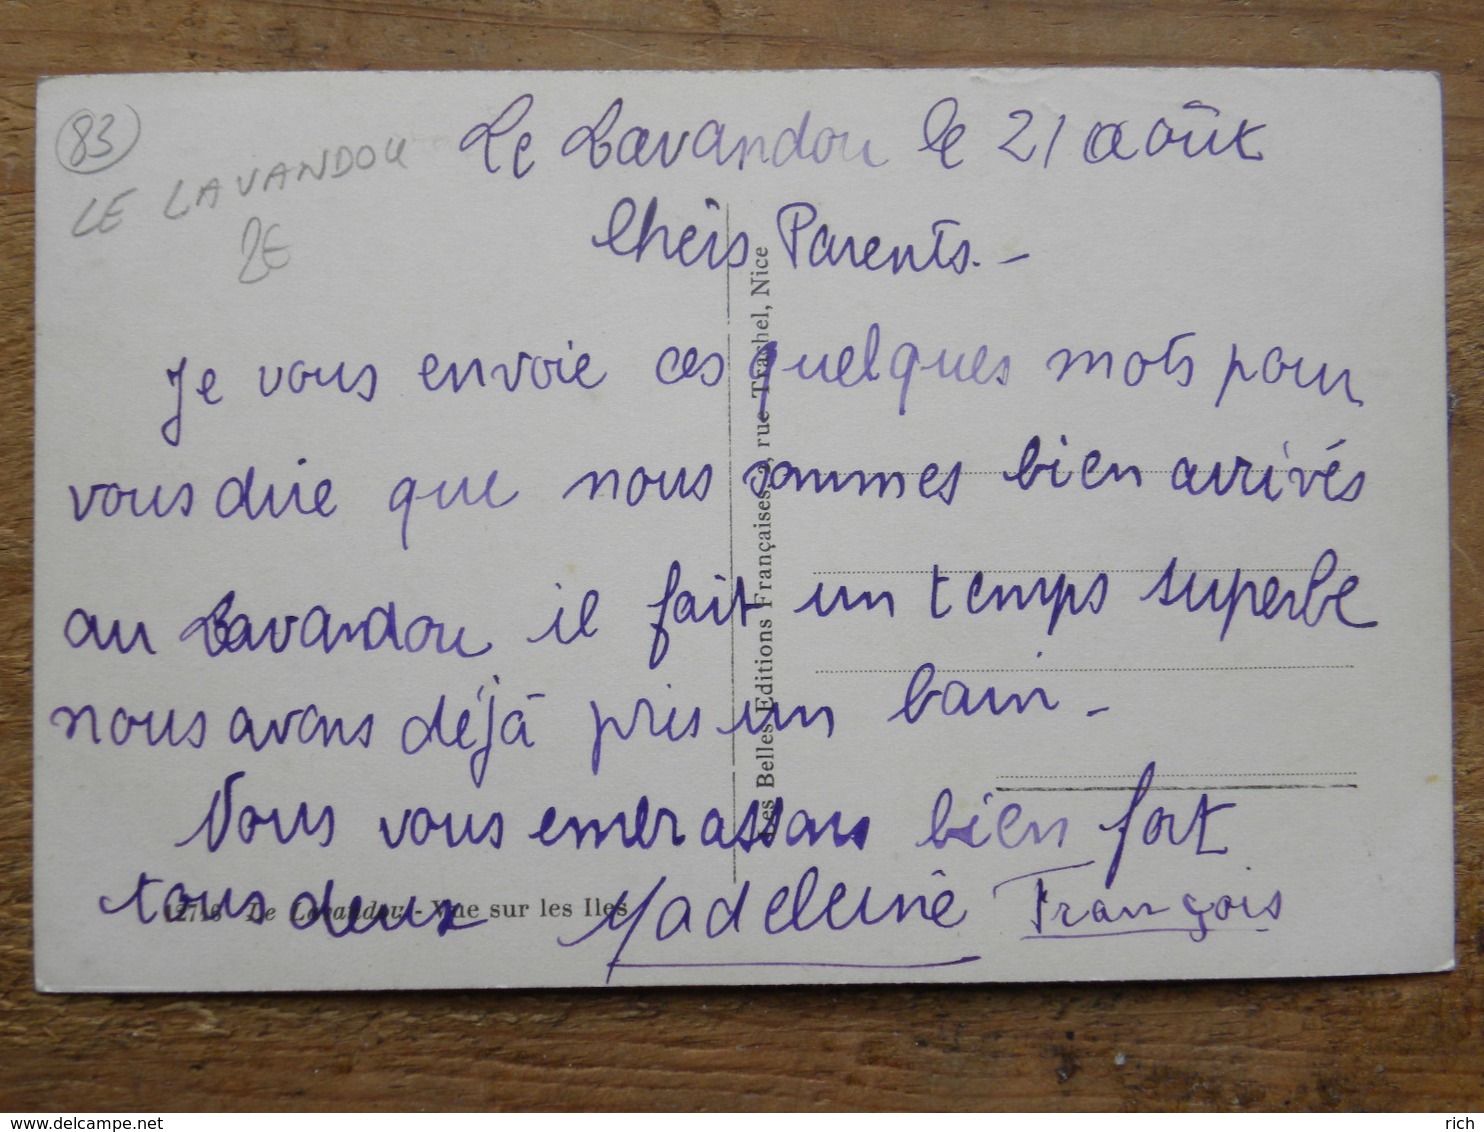 83
LE LAVANDOU
2€
Le Lavandou le 21 août
Cheis Parents. -
Je vous envoie ces quelques mots pour
vous dire que nous sommes bien arrivés
au Lavandou il fait un temps superbe
nous avons déjà pris un bain -
Nous vous embrassons bien fort
tous deux Madeleine François
Le Lavandou - Vue sur les Iles
Les Belles Editions Françaises, rue Trachel, Nice
www.delcampe.net
rich